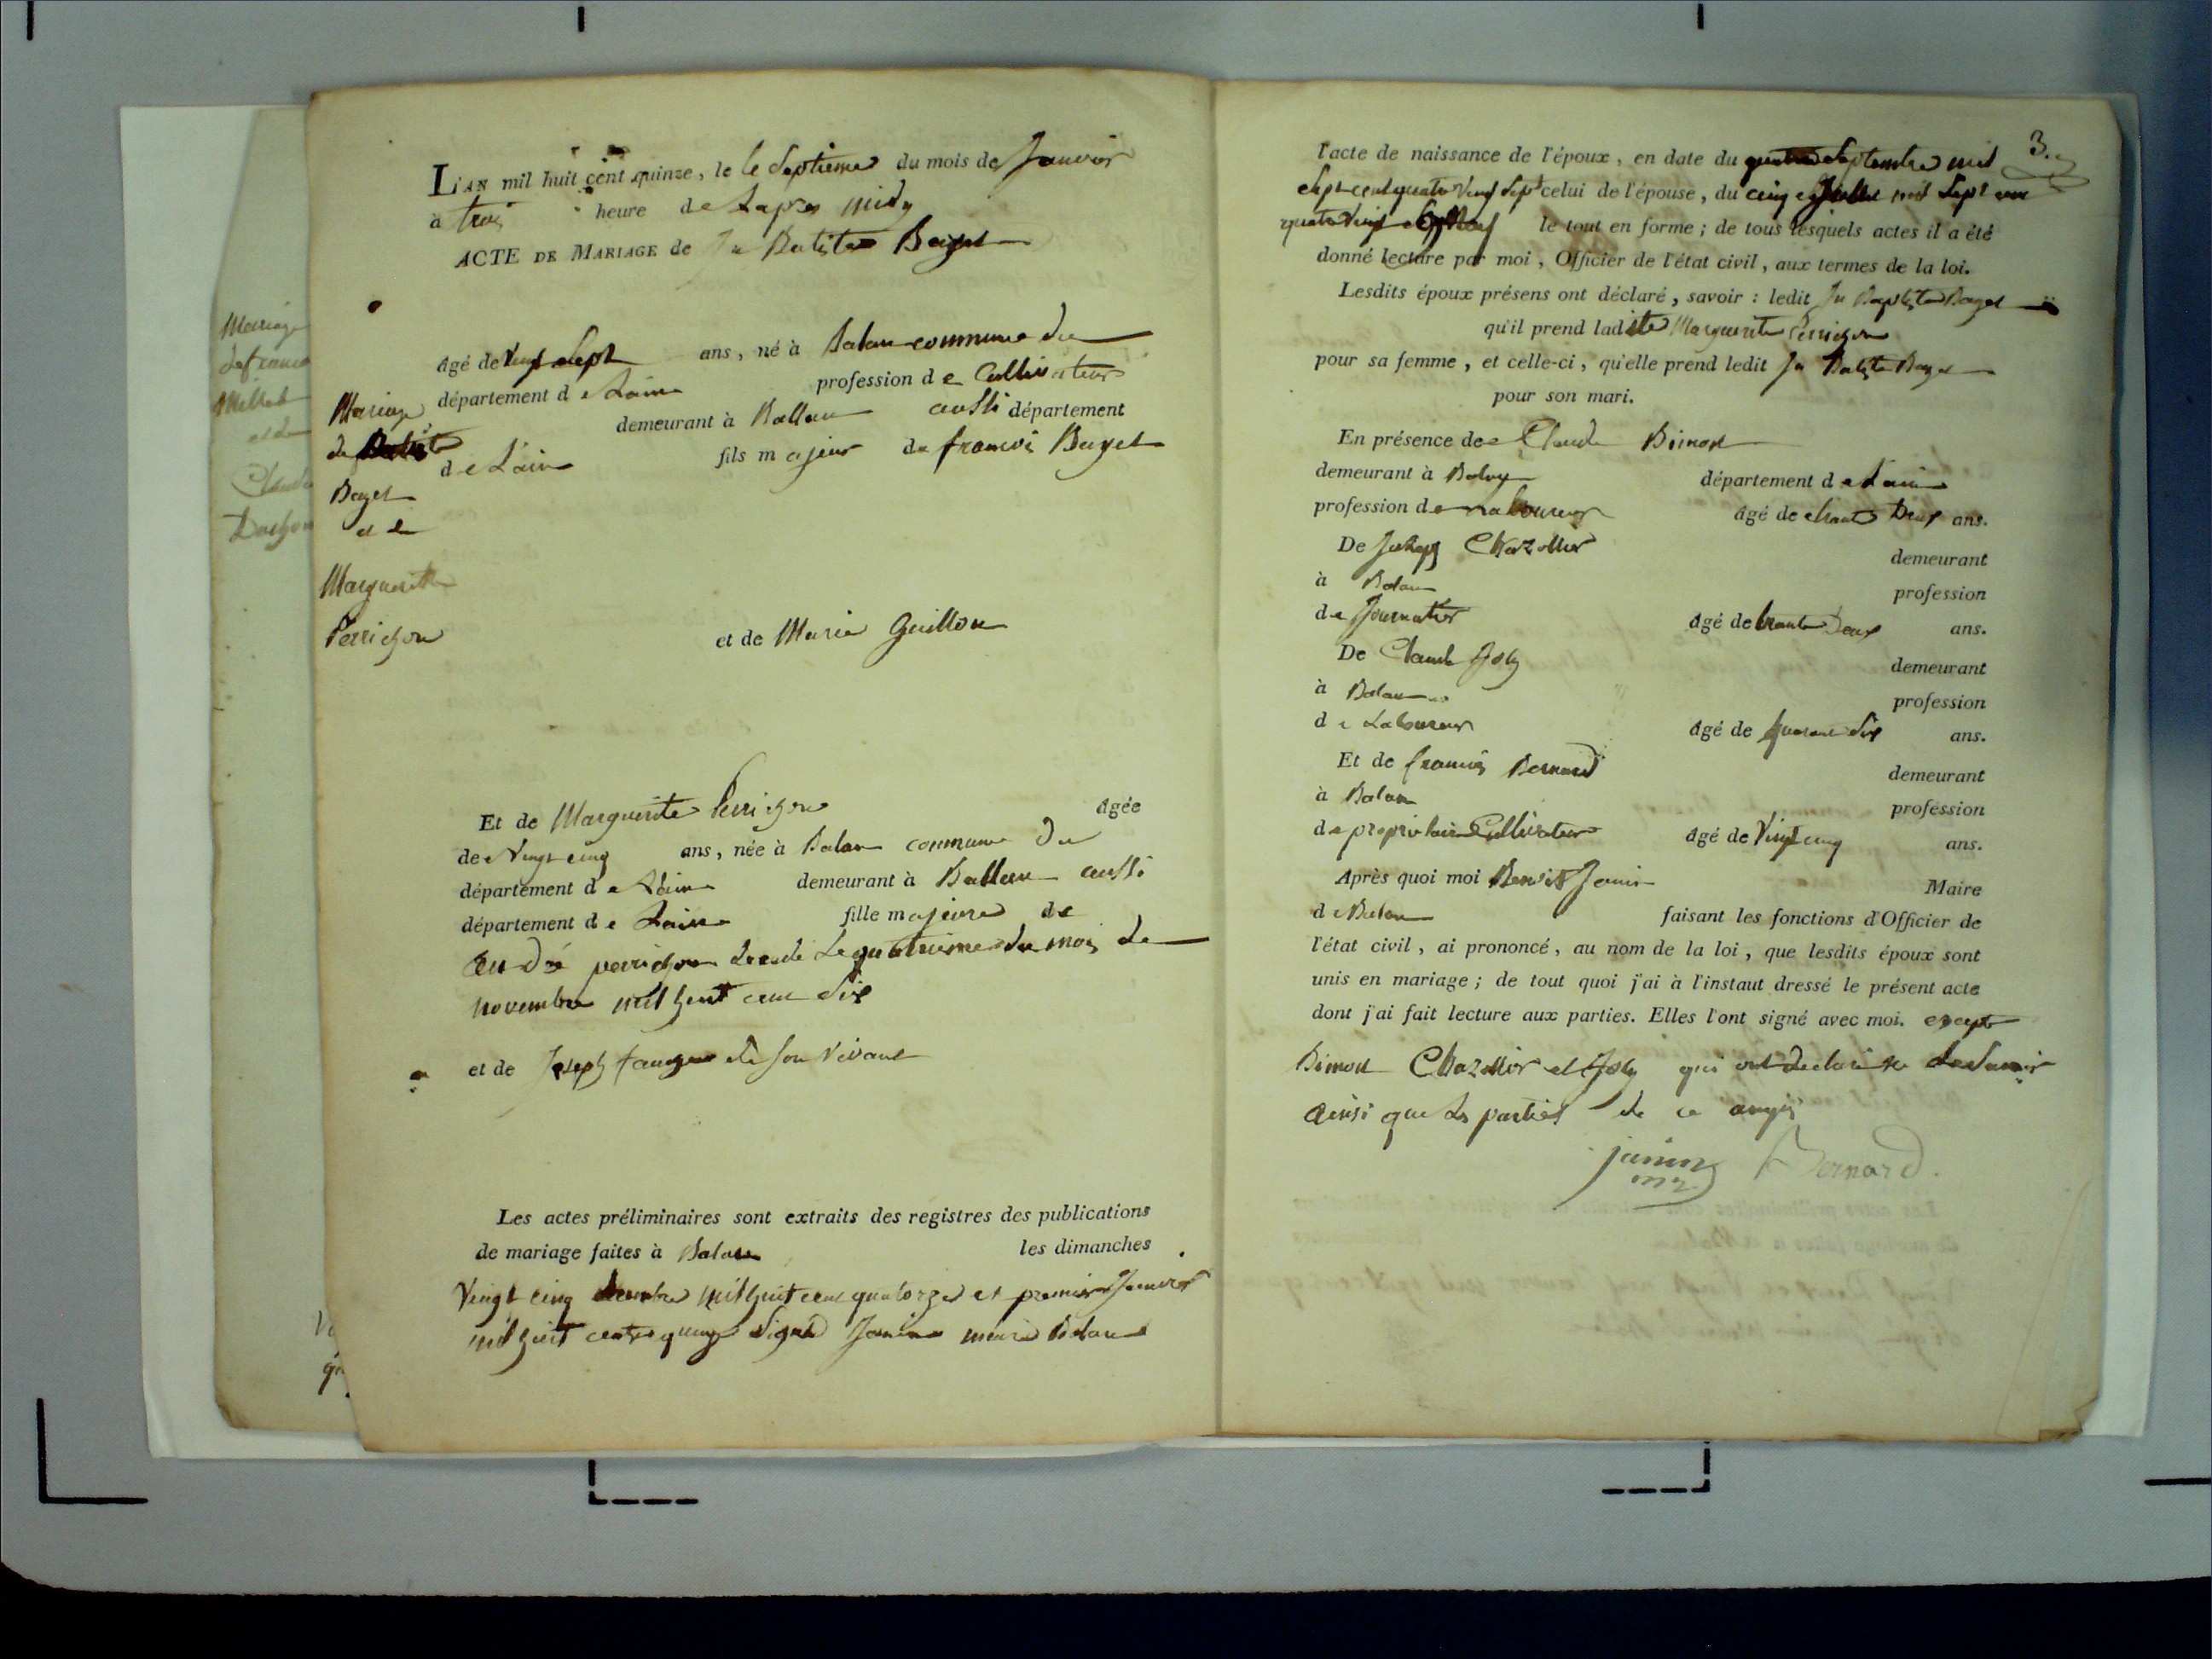 L'AN mil huit cent quinze, le le septieme du mois de Janvier
à trois heure de Lapres midy
ACTE DE MARIAGE de Jn Batiste Bayet
âgé de vingt sept ans, né à Balan commune du
département de Lain profession de Cultivateur
demeurant à Ballan aussi département
de Lain fils majeur de francois Bayet
et de Marie Guillon
Mariage
de Batiste
Bayet
et de
Marguerite
Perrichon
Et de Marguerite Perrichon âgée
de Vingt cinq ans, née à Balan commune du
département de Lain demeurant à Ballan aussi
département de Lain fille majeure de
André perrichon décédé Le quatrieme du mois de
novembre mil huit cent dix
et de Joseph de son vivant
Les actes préliminaires sont extraits des registres des publications
de mariage faites à Balan les dimanches
Vingt cinq décembre mil huit cent quatorze et premier Janvier
mil huit cent quinze signé Janin maire Balan
Mariage
de francois
Millet
et de
Claudi
3.
l'acte de naissance de l'époux, en date du quatre septembre mil
sept cent quatre vingt sept celui de l'épouse, du cinq juillet mil sept cent
quatre vingt neuf le tout en forme; de tous lesquels actes il a été
donné lecture par moi, Officier de l'état civil, aux termes de la loi.
Lesdits époux présens ont déclaré, savoir : ledit Jn Baptiste Bayet
qu'il prend ladite Marguerite Perrichon
pour sa femme, et celle-ci, qu'elle prend ledit Jn Batiste Bayet
pour son mari.
En présence de Claude Bimon
demeurant à Balan département de Lain
profession de Laboureur âgé de trante deux ans.
De Joseph Chazottier demeurant
à Balan profession
de Journalier âgé de trante deux ans.
De Claude Joly demeurant
à Balan profession
de Laboureur âgé de quarante six ans.
Et de francois Bernard demeurant
à Balan profession
de propriétaire Cultivateur âgé de Vingt cinq ans.
Après quoi moi Benoit Janin Maire
de Balan faisant les fonctions d'Officier de
l'état civil, ai prononcé, au nom de la loi, que lesdits époux sont
unis en mariage; de tout quoi j'ai à l'instaut dressé le présent acte
dont j'ai fait lecture aux parties. Elles l'ont signé avec moi. excepté
Bimon Chazottier et Joly qui ont declaré ne le savoir
ainsi que les parties de ce enquis
janin Bernard.